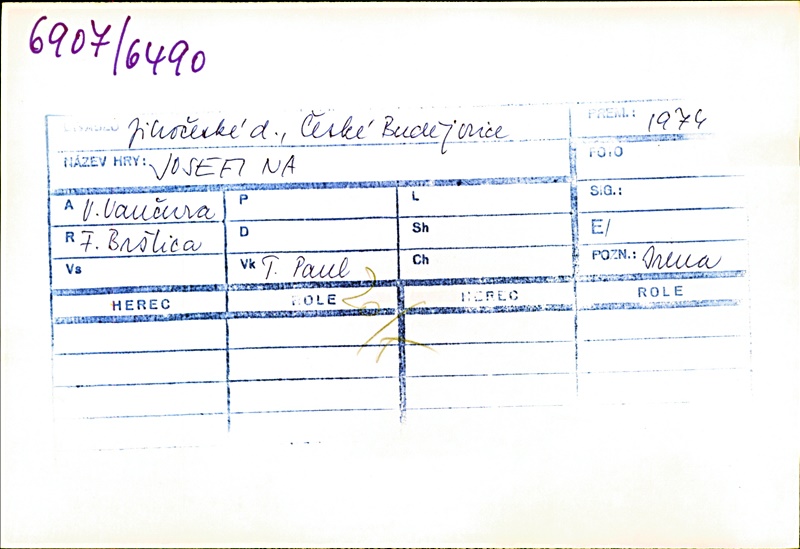 6907/6490
DIVADLO Jihočeské d., České Budějovice PREM.: 1974
NÁZEV HRY: JOSEFINA FOTO
A V. Vančura P L SIG.:
R F. Brštica D Sh E/
Vs Vk T. Paul Ch POZN.: Irena
HEREC ROLE HEREC ROLE